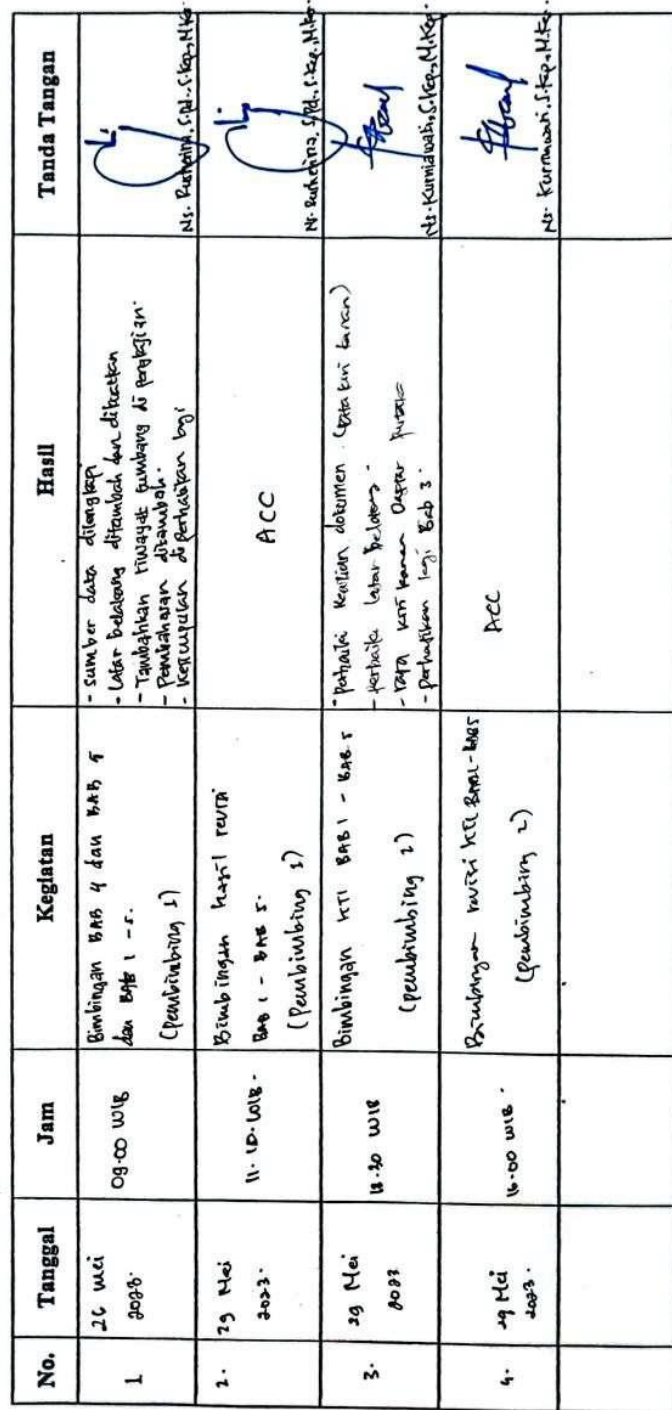 No. Tanggal Jam Kegiatan Hasil Tanda Tangan
1
26 Mei
2023.
09.00 WIB
Bimbingan BAB 4 dan BAB 5
dan BAB 1 - 5.
(Pembimbing 1)
- Sumber data dilengkapi
- Latar belakang ditambah dan
- Tambahkan riwayat tumbang di pengkajian.
- Pembahasan ditambah.
- Kesimpulan diperhatikan lagi
Ns. S.Pd., S.Kep., M.Kes
2.
29 Mei
2023.
11.10 WIB.
Bimbingan hasil revisi
BAB 1 - BAB 5.
(Pembimbing 1)
ACC
Ns. S.Pd., S.Kep., M.Kes
3.
29 Mei
2023
WIB
Bimbingan KTI BAB 1 - BAB 5
(Pembimbing 2)
- Perbaiki dokumen (rata kiri kanan)
- Perbaiki latar belakang.
- rata kiri kanan Daftar Pustaka
- Perhatikan lagi Bab 3.
Ns. Kurniawati, S.Kep., M.Kep.
4.
29 Mei
2023.
16.00 WIB.
Bimbingan revisi KTI BAB1-BAB5
(Pembimbing 2)
ACC
Ns. Kurniawati, S.Kep., M.Kep.